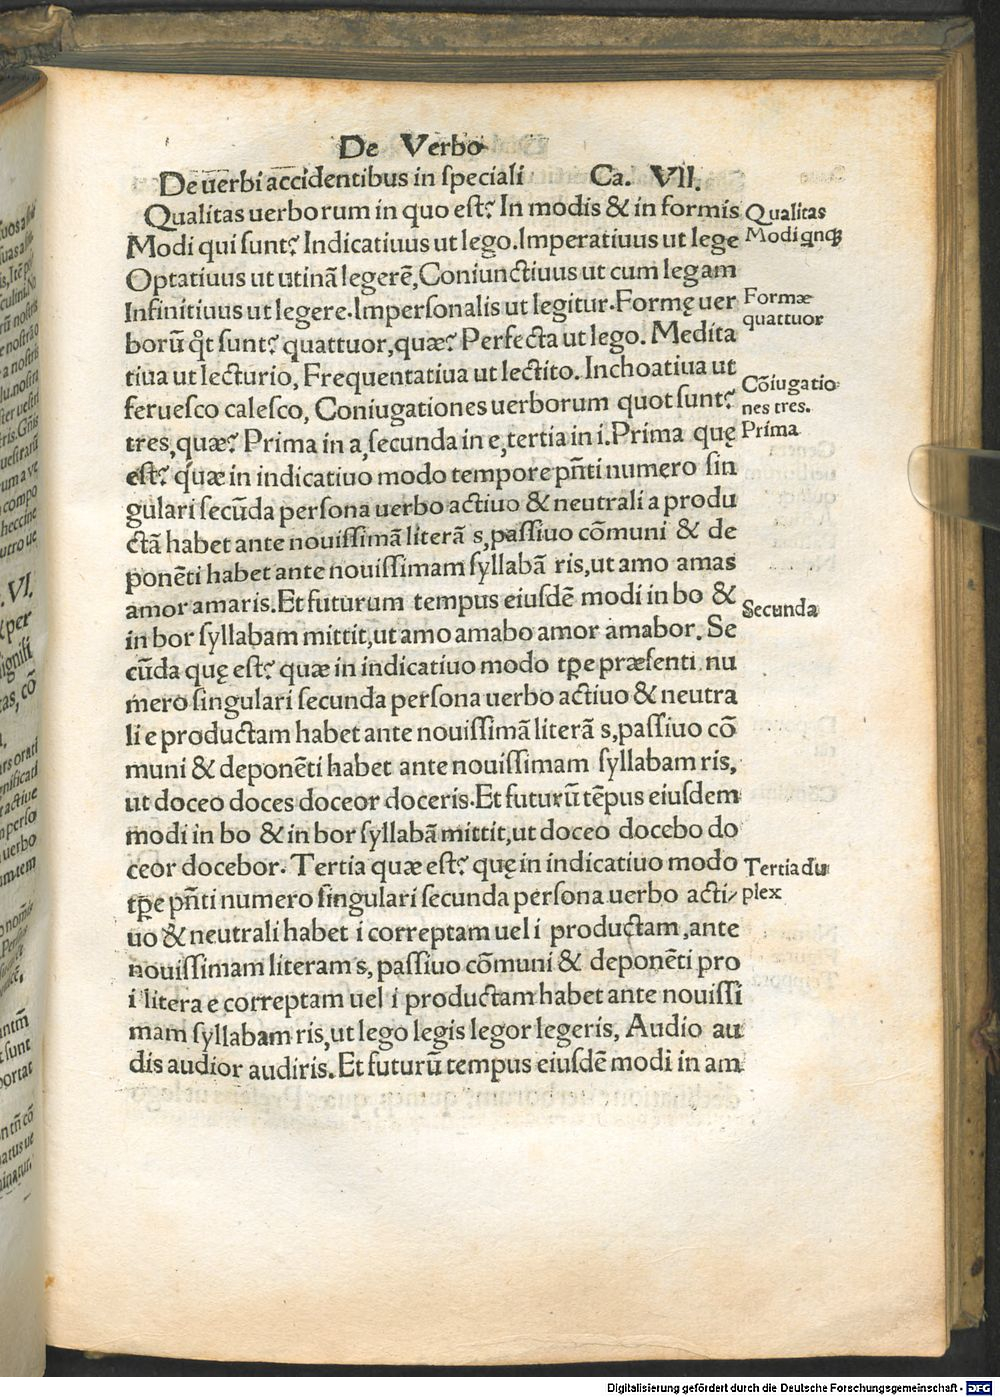 De Verbo
De uerbi accidentibus in speciali Ca. VII.
Qualitas uerborum in quo est? In modis & in formis
Modi qui sunt? Indicatiuus ut lego. Imperatiuus ut lege
Optatiuus ut utinā legerē, Coniunctiuus ut cum legam
Infinitiuus ut legere. Impersonalis ut legitur. Formę uer
borū qͦt sunt? quattuor, quæ? Perfecta ut lego. Medita
tiua ut lecturio, Frequentatiua ut lectito. Inchoatiua ut
feruesco calesco, Coniugationes uerborum quot sunt?
tres, quæ? Prima in a, secunda in e, tertia in i. Prima quę
est? quæ in indicatiuo modo tempore pn̄ti numero sin
gulari secūda persona uerbo actiuo & neutrali a produ
ctā habet ante nouissimā literā s, passiuo cōmuni & de
ponēti habet ante nouissimam syllabā ris, ut amo amas
amor amaris. Et futurum tempus eiusdē modi in bo &
in bor syllabam mittit, ut amo amabo amor amabor. Se
cūda quę est? quæ in indicatiuo modo tꝑe præsenti nu
mero singulari secunda persona uerbo actiuo & neutra
li e productam habet ante nouissimā literā s, passiuo cō
muni & deponēti habet ante nouissimam syllabam ris,
ut doceo doces doceor doceris. Et futurū tēpus eiusdem
modi in bo & in bor syllabā mittit, ut doceo docebo do
ceor docebor. Tertia quæ est? quę in indicatiuo modo
tꝑe pn̄ti numero singulari secunda persona uerbo acti-
uo & neutrali habet i correptam uel i productam, ante
nouissimam literam s, passiuo cōmuni & deponēti pro
i litera e correptam uel i productam habet ante nouissi
mam syllabam ris, ut lego legis legor legeris, Audio au
dis audior audiris. Et futurū tempus eiusdē modi in am
Qualitas
Modi qnqꝫ
Formæ
quattuor
Cōiugatio-
nes tres.
Prima
Secunda
Tertia du
plex
Digitalisierung gefördert durch die Deutsche Forschungsgemeinschaft - DFG